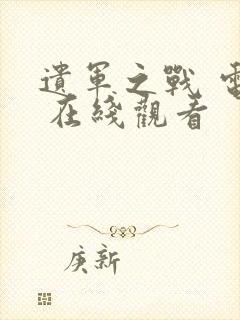 遺軍之戰 電
在綫觀看
庚新